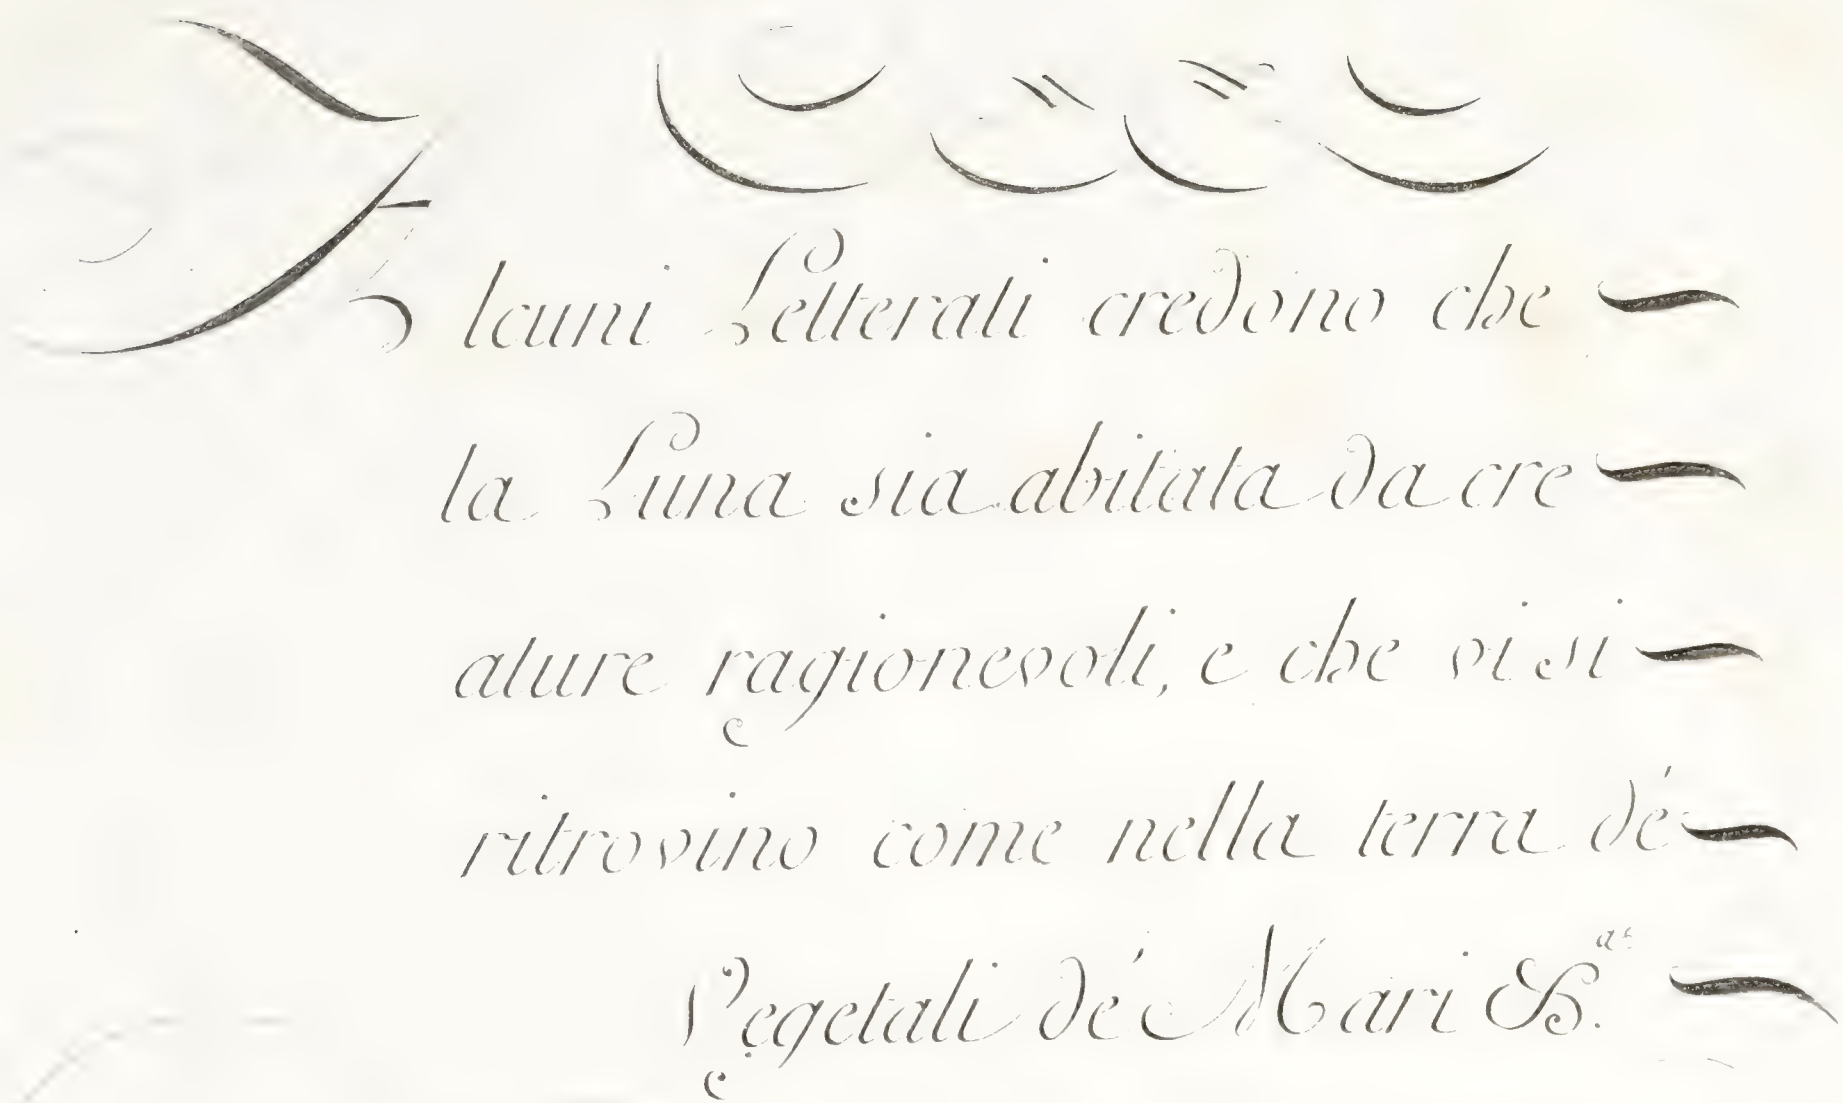 Alcuni Letterati credono che
la Luna sia abitata da cre
ature ragionevoli, e che vi si
ritrovino come nella terra dé
Vegetali dé Mari &